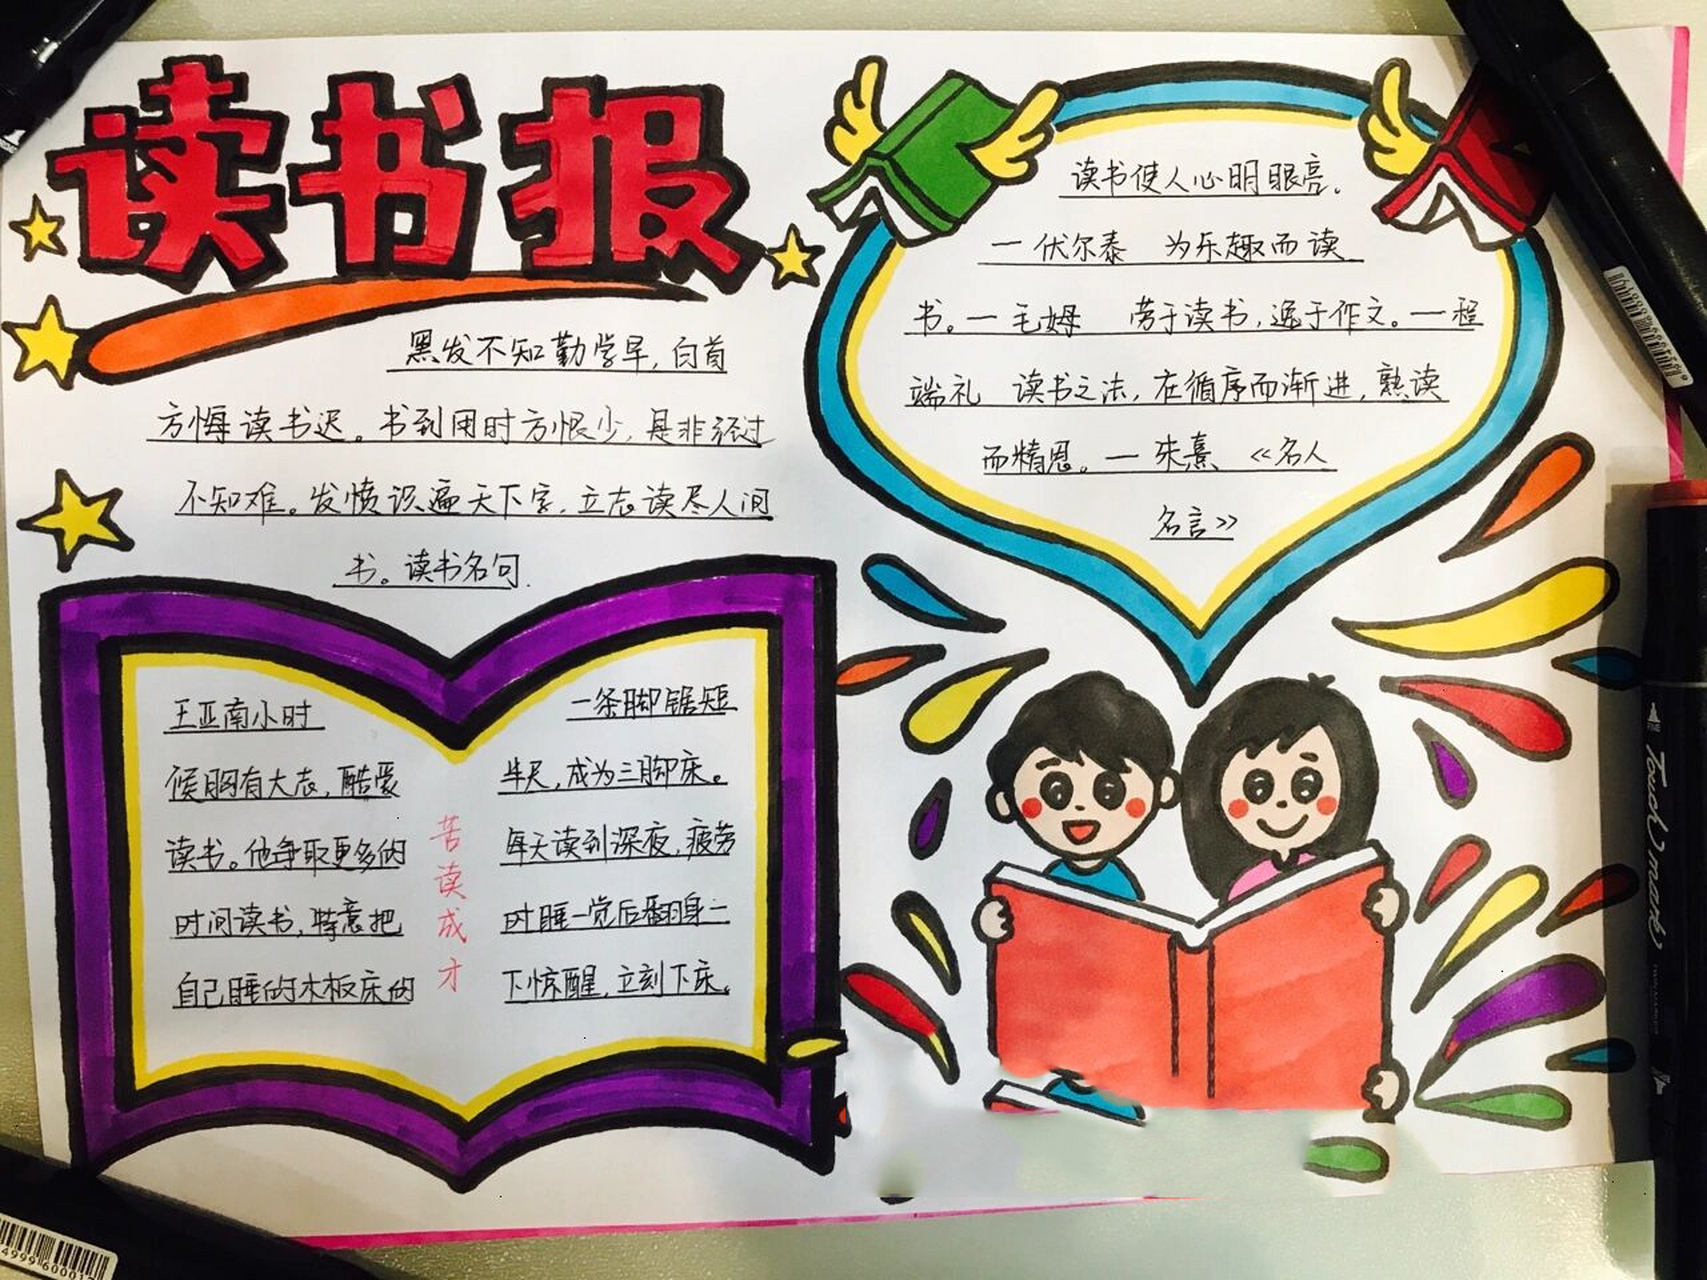 读书报
黑发不知勤学早,白首
方悔读书迟。书到用时方恨少,是非经过
不知难。发愤识遍天下字,立志读尽人间
书。读书名句.
王亚南小时
候胸有大志,酷爱
读书。他争取更多的
时间读书,特意把
自己睡的木板床的
苦读成才
一条脚锯短
半尺,成为三脚床。
每天读到深夜,疲劳
时睡一觉后翻身一
下惊醒,立刻下床。
读书使人心明眼亮。
一伏尔泰 为乐趣而读
书。一毛姆 劳于读书,逸于作文。一程
端礼 读书之法,在循序而渐进,熟读
而精思。一朱熹 《名人
名言》
Touch mark
4999600017